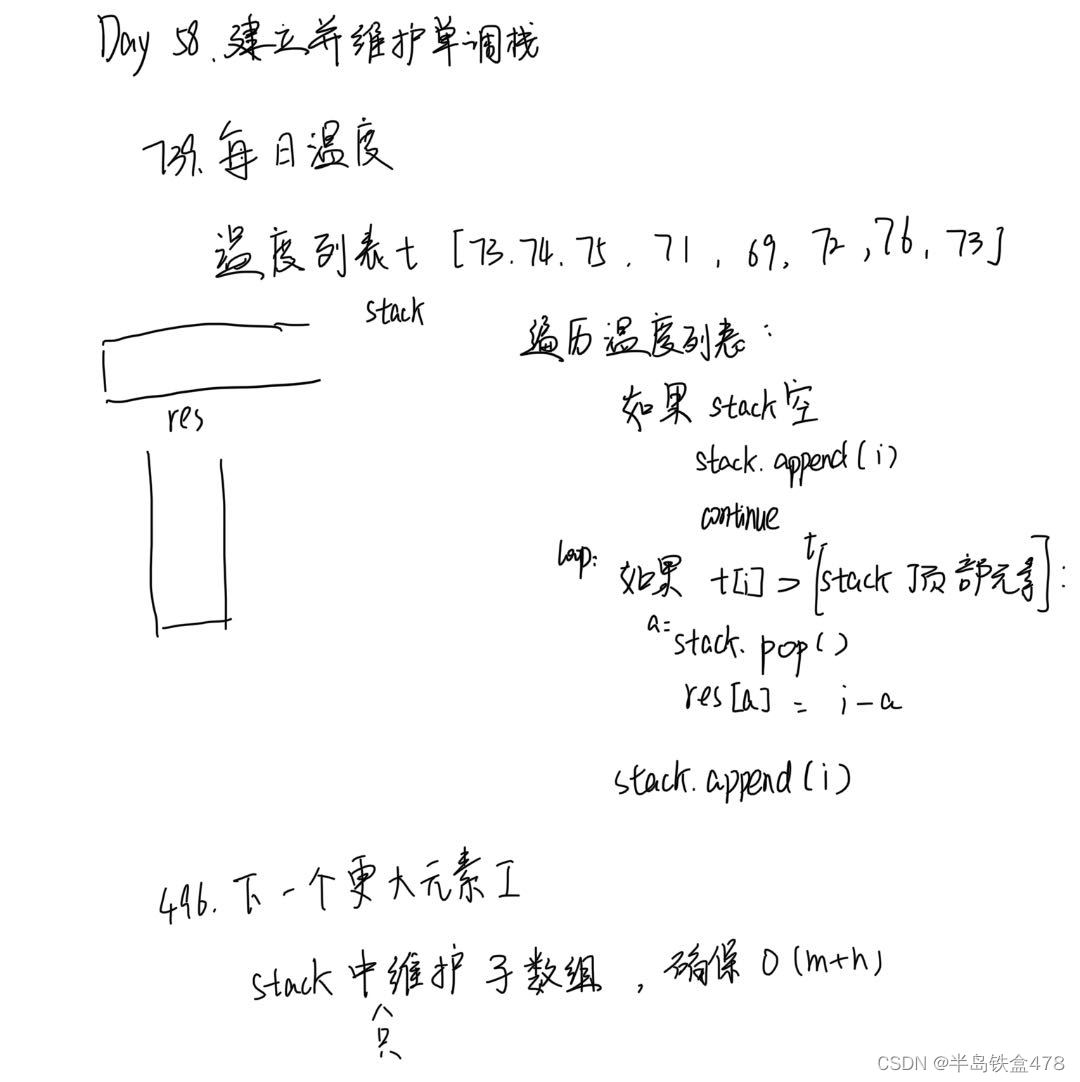 Day 58.建立并维护单调栈
739.每日温度
温度列表t [73.74.75.71.69.72,76.73]
stack
res
遍历温度列表:
如果 stack空
stack.append(i)
continue
loop: 如果 t[i] > t[stack 顶部元素]:
a= stack.pop()
res[a] = i-a
stack.append(i)
496.下一个更大元素I
stack 中只维护子数组,确保 O(m+n)
CSDN @半岛铁盒478